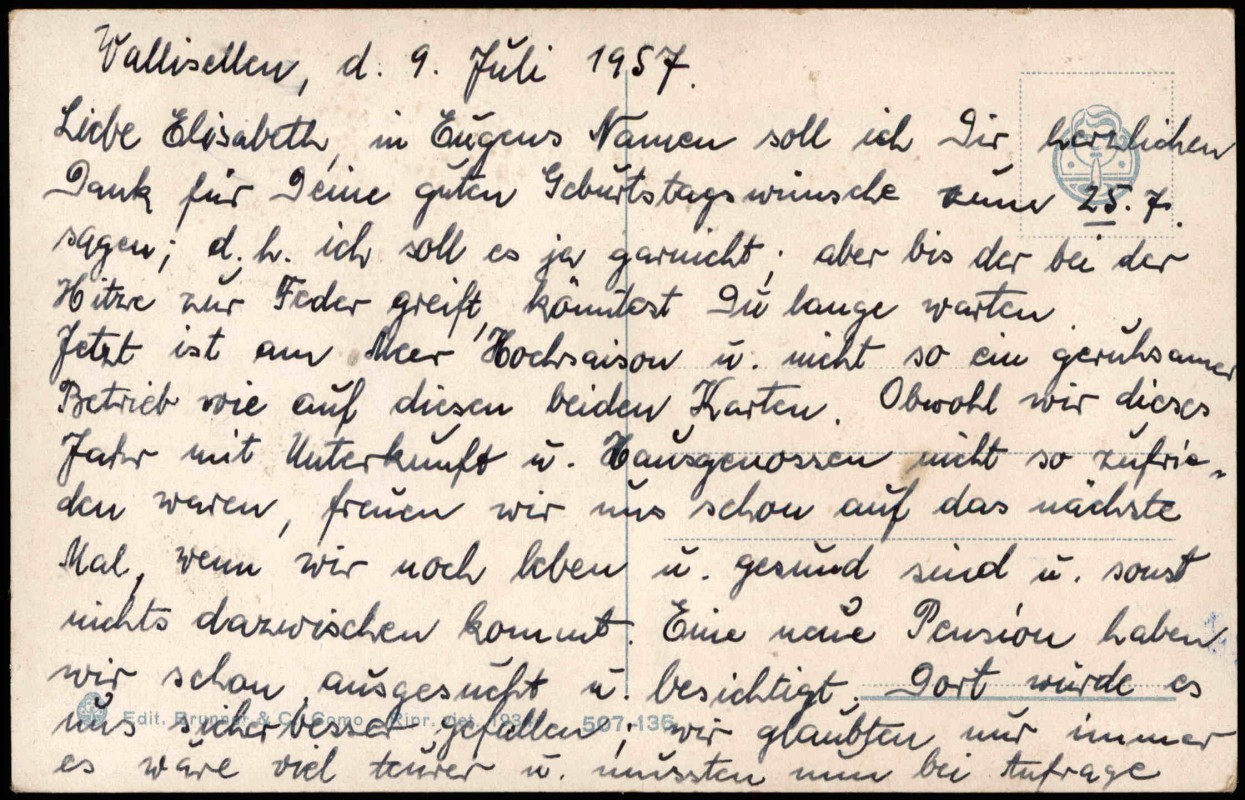 Wallisellen, d. 9. Juli 1957.
Liebe Elisabeth, in Eugens Namen soll ich Dir herzlichen
Dank für Deine guten Geburtstagswünsche zum 25. 7.
sagen; d. h. ich soll es ja garnicht; aber bis der bei der
Hitze zur Feder greift, könntest Du lange warten.
Jetzt ist am Meer Hochsaison u. nicht so ein geruhsamer
Betrieb wie auf diesen beiden Karten. Obwohl wir dieses
Jahr mit Unterkunft u. Hausgenossen nicht so zufrie-
den waren, freuen wir uns schon auf das nächste
Mal, wenn wir noch leben u. gesund sind u. sonst
nichts dazwischen kommt. Eine neue Pension haben
wir schon ausgesucht u. besichtigt. Dort würde es
uns sicher besser gefallen; wir glaubten nur immer
Edit. Brunner & C. Como Ripr. viet. 507-136
es wäre viel teurer u. mussten nun bei Anfrage